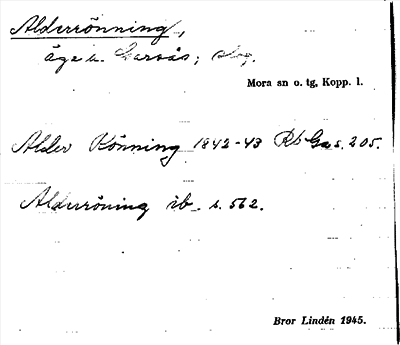 Alderrönning,
äga u. Garsås;
Mora sn o. tg, Kopp. l.
Alder Rönning 1842-43 Rb Ga s. 205.
Alderröning ib. s. 562.
Bror Lindén 1945.